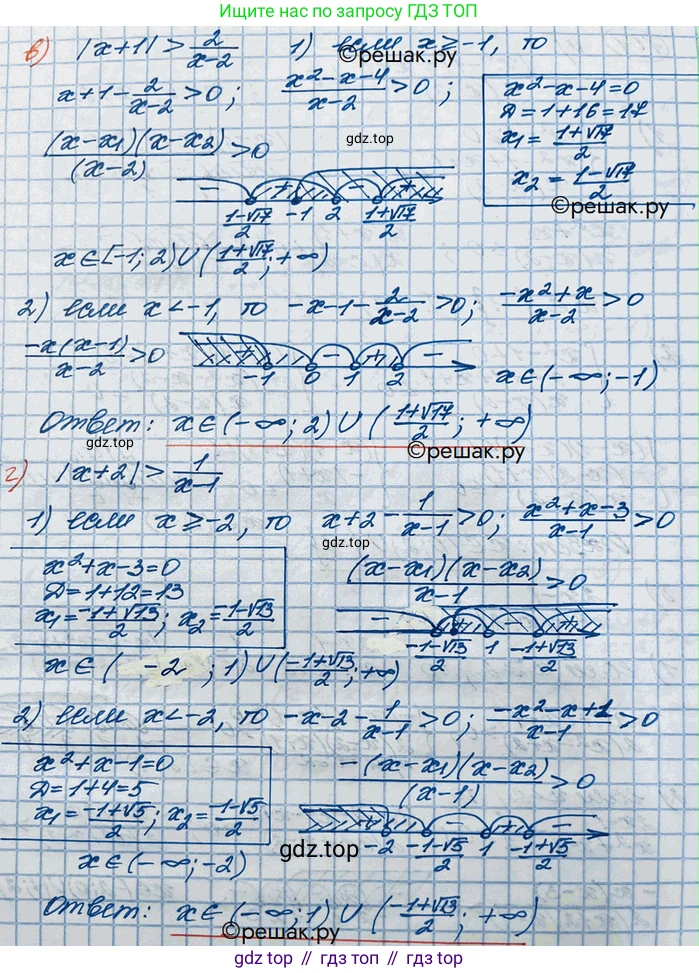 Ищите нас по запросу ГДЗ ТОП
в) |x+1| > 2/(x-2)   1) если x ≥ -1, то
©решак.ру
x+1 - 2/(x-2) > 0; (x²-x-4)/(x-2) > 0;
x²-x-4=0
D=1+16=17
x₁ = (1+√17)/2
x₂ = (1-√17)/2
©решак.ру
gdz.top
(x-x₁)(x-x₂)/(x-2) > 0
- + - +
(1-√17)/2 -1 2 (1+√17)/2
x∈[-1; 2) ∪ ((1+√17)/2; +∞)
2) если x < -1, то -x-1 - 2/(x-2) > 0; (-x²+x)/(x-2) > 0
-x(x-1)/(x-2) > 0
+ - + -
-1 0 1 2
x∈(-∞; -1)
Ответ: x∈(-∞; 2) ∪ ((1+√17)/2; +∞)
gdz.top
©решак.ру
г) |x+2| > 1/(x-1)
1) если x ≥ -2, то x+2 - 1/(x-1) > 0; (x²+x-3)/(x-1) > 0
gdz.top
x²+x-3=0
D=1+12=13
x₁ = (-1+√13)/2; x₂ = (-1-√13)/2
(x-x₁)(x-x₂)/(x-1) > 0
- + - +
(-1-√13)/2 1 (-1+√13)/2
x∈( -2 ; 1) ∪ ((-1+√13)/2; +∞)
gdz.top
2) если x < -2, то -x-2 - 1/(x-1) > 0; (-x²-x+1)/(x-1) > 0
x²+x-1=0
D=1+4=5
x₁ = (-1+√5)/2; x₂ = (-1-√5)/2
-(x-x₁)(x-x₂)/(x-1) > 0
+ - + -
-2 (-1-√5)/2 1 (-1+√5)/2
gdz.top
x∈(-∞; -2)
Ответ: x∈(-∞; 1) ∪ ((-1+√13)/2; +∞)
©решак.ру
gdz top // гдз топ // gdz.top